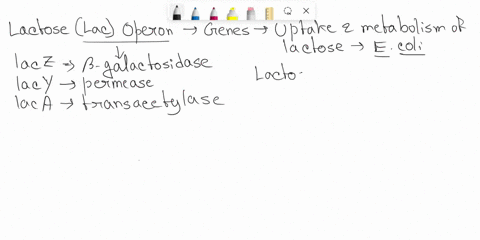 Lactose (Lac) Operon → Genes → Uptake & metabolism of
lactose → E. coli
lac Z → β-galactosidase
lac Y → permease
lac A → transacetylase
Lacto